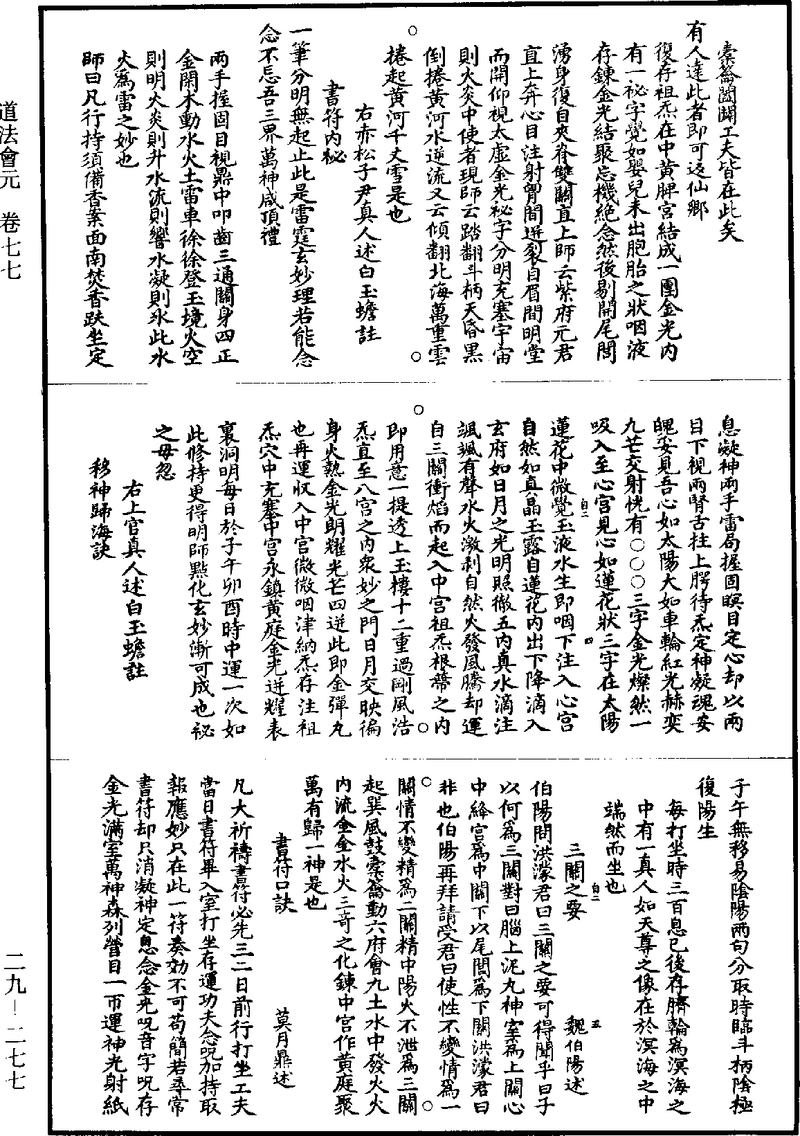 橐籥闔闢工夫皆在此矣
有人達此者即可返仙鄉
復存祖炁在中黃脾宮結成一團金光內
有一祕字覺如嬰兒未出胞胎之狀咽液
存鍊金光結聚忘機絕念然後剔開尾閭
湧身復自夾脊雙關直上師云紫府元君
直上奔心目注射胷間迸裂自眉間明堂
而開仰視太虛金光祕字分明充塞宇宙
則火炎中使者現師云踏翻斗柄天昏黑
倒捲黃河水逆流又云傾翻北海萬重雲
捲起黃河千丈雪是也
右亦松子尹真人述白玉蟾註
書符內祕
一筆分明無起止此是雷霆玄妙理若能念
念不忘吾三界萬神咸頂禮
兩手握固目視鼎中叩齒三通關身四正
金關木動水火土雷車徐徐登玉境火空
則明火炎則升水流則響水凝則氷此水
火為雷之妙也
師曰凡行持須備香案面南焚香趺坐定
息凝神兩手雷局握固瞑目定心却以兩
目下視兩腎舌柱上腭待炁定神凝魂安
魄妥見吾心如太陽大如車輪紅光赫奕
九芒交射恍有○○○三字金光燦然一
吸入至心宮見心如蓮花狀三字在太陽
蓮花中微覺玉液水生即咽下注入心宮
自然如真晶玉露自蓮花內出下降滴入
玄府如日月之光明照徹五內真水滴注
颯颯有聲水火激剝自然火發風騰却運
自三關衝焰而起入中宮祖炁根蔕之內
即用意一提透上玉樓十二重過剛風浩
炁直至八宮之內衆妙之門日月交映徧
身火熱金光朗耀光芒四迸此即金彈丸
也再運収入中宮微微咽津納炁存注祖
炁穴中充塞中宮永鎮黃庭金光迸耀表
裏洞明每日於子午卯酉時中運一次如
此修持更得明師點化玄妙漸可成也祕
之毋忽
右上官真人述白玉蟾註
移神歸海訣
子午無移易陰陽兩句分取時臨斗柄陰極
復陽生
每打坐時三百息已後存臍輪為溟海之
中有一真人如天尊之像在於溟海之中
端然而坐也
三關之要 魏伯陽述
伯陽問洪濛君曰三關之要可得聞乎曰子
以何為三關對曰腦上泥丸神室為上關心
中絳宮為中關下以尾閭為下關洪濛君曰
非也伯陽再拜請受君曰使性不變情為一
關情不變精為二關精中陽火不泄為三關
起巽風鼓橐籥動六府會九土水中發火火
內流金金水火三奇之化鍊中宮作黃庭聚
萬有歸一神是也
書符口訣 莫月鼎述
凡大祈禱書符必先三二日前行打坐工夫
當日書符畢入室打坐存運功夫念呪加持取
報應妙只在此一符奏効不可苟簡若尋常
書符却只消凝神定息念金光呪音字呪存
金光滿室萬神森列瞥目一帀運神光射紙
道法會元 卷七七
二九—二七七